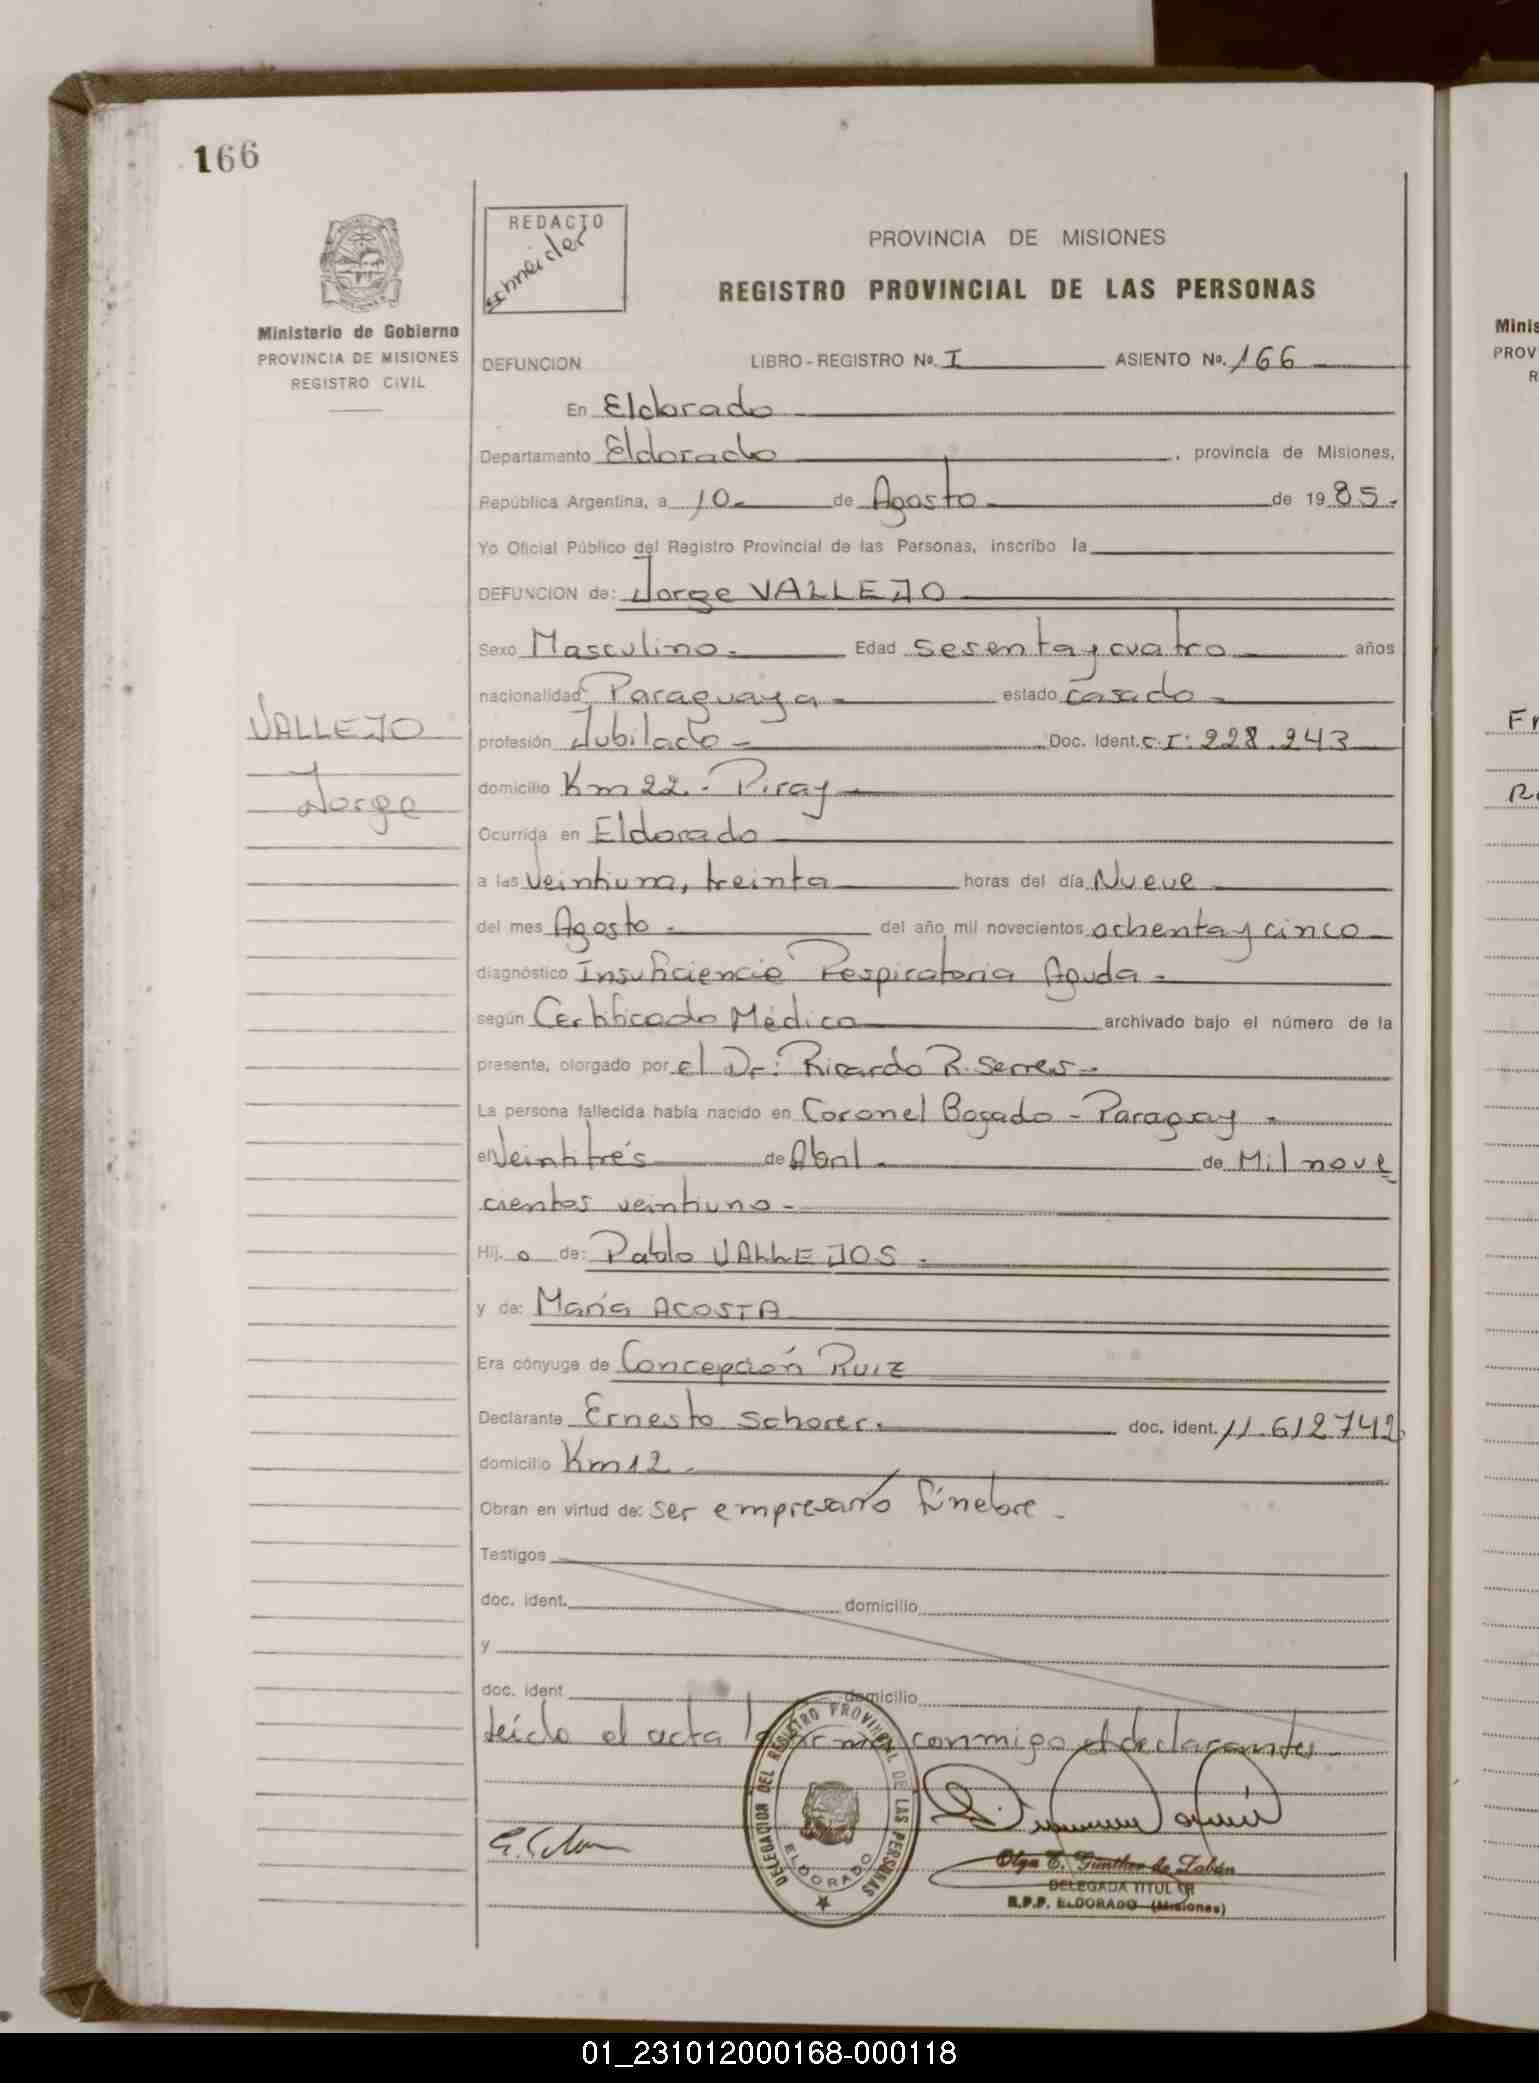 166
Ministerio de Gobierno
PROVINCIA DE MISIONES
REGISTRO CIVIL
REDACTO
Schneider
PROVINCIA DE MISIONES
REGISTRO PROVINCIAL DE LAS PERSONAS
DEFUNCION LIBRO-REGISTRO Nº. I ASIENTO Nº. 166
En Eldorado
Departamento Eldorado, provincia de Misiones,
República Argentina, a 10 de Agosto de 1985.
Yo Oficial Público del Registro Provincial de las Personas, inscribo la
DEFUNCION de: Jorge VALLEJO
Sexo Masculino. Edad sesenta y cuatro años
nacionalidad Paraguaya estado casado
VALLEJO
Jorge
profesión Jubilado Doc. Ident. C.I: 228.243
domicilio Km 22. - Piray
Ocurrida en Eldorado
a las veintiuna, treinta horas del día Nueve
del mes Agosto del año mil novecientos ochenta y cinco
diagnóstico Insuficiencia Respiratoria Aguda
según Certificado Médico archivado bajo el número de la
presente, otorgado por el Dr: Ricardo R. Serres
La persona fallecida había nacido en Coronel Bogado - Paraguay
el Veintitrés de Abril de Mil nove
cientos veintiuno
Hij o de: Pablo VALLEJOS
y de: María ACOSTA
Era cónyuge de Concepción RUIZ
Declarante Ernesto Schorer. doc. ident. 11.612742
domicilio Km 12
Obran en virtud de: ser empresario fúnebre.
Testigos
doc. ident. domicilio
y
doc. ident domicilio
Leído el acta la firma conmigo el declarante
DELEGACION DEL REGISTRO PROVINCIAL DE LAS PERSONAS
ELDORADO
Olga E. Günther de Zabán
DELEGADA TITULAR
R.P.P. ELDORADO (Misiones)
Minis
PROV
R
01_231012000168-000118